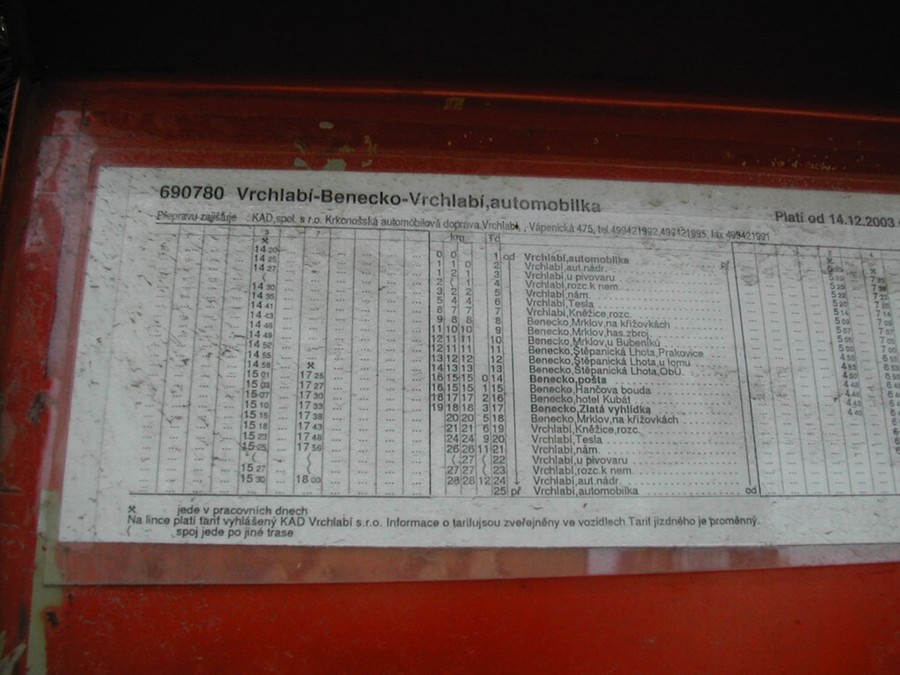 690780 Vrchlabí-Benecko-Vrchlabí,automobilka
Platí od 14.12.2003
Přepravu zajišťuje : KAD,spol. s r.o. Krkonošská automobilová doprava,Vrchlabí, Vápenická 475, tel.499421992,499421995, fax 499421991
3 7 km Tč
14 20 0 0 1 od Vrchlabí,automobilka
14 25 1 1 0 2 Vrchlabí,aut.nádr. př
14 27 1 2 1 3 Vrchlabí,u pivovaru
2 ( 1 4 Vrchlabí,rozc.k nem.
14 30 3 2 2 5 Vrchlabí,nám.
14 35 5 4 4 6 Vrchlabí,Tesla
14 41 8 7 7 7 Vrchlabí,Kněžice,rozc.
14 43 9 8 8 8 Benecko,Mrklov,na křižovkách
14 46 11 10 10 9 Benecko,Mrklov,has.zbroj.
14 49 12 11 11 10 Benecko,Mrklov,u Bubeníků
14 52 12 11 11 11 Benecko,Štěpanická Lhota,Prakovice
14 55 13 12 12 12 Benecko,Štěpanická Lhota,u lomu
14 58 14 13 13 13 Benecko,Štěpanická Lhota,ObÚ
15 01 17 25 16 15 15 0 14 Benecko,pošta
15 03 17 27 16 15 15 1 15 Benecko,Hančova bouda
15 07 17 30 18 17 17 2 16 Benecko,hotel Kubát
15 10 17 33 19 18 18 3 17 Benecko,Zlatá vyhlídka
15 15 17 38 20 20 5 18 Benecko,Mrklov,na křižovkách
15 18 17 43 21 21 6 19 Vrchlabí,Kněžice,rozc.
15 23 17 48 24 24 9 20 Vrchlabí,Tesla
15 25 17 56 26 26 11 21 Vrchlabí,nám.
( ( ( 27 ( 22 Vrchlabí,u pivovaru
15 27 ( 27 27 ( 23 Vrchlabí,rozc.k nem.
15 30 18 00 28 28 12 24 Vrchlabí,aut.nádr.
25 př Vrchlabí,automobilka od
jede v pracovních dnech
Na lince platí tarif vyhlášený KAD Vrchlabí s.r.o. Informace o tarifujsou zveřejněny ve vozidlech Tarif jízdného je proměnný.
( spoj jede po jiné trase